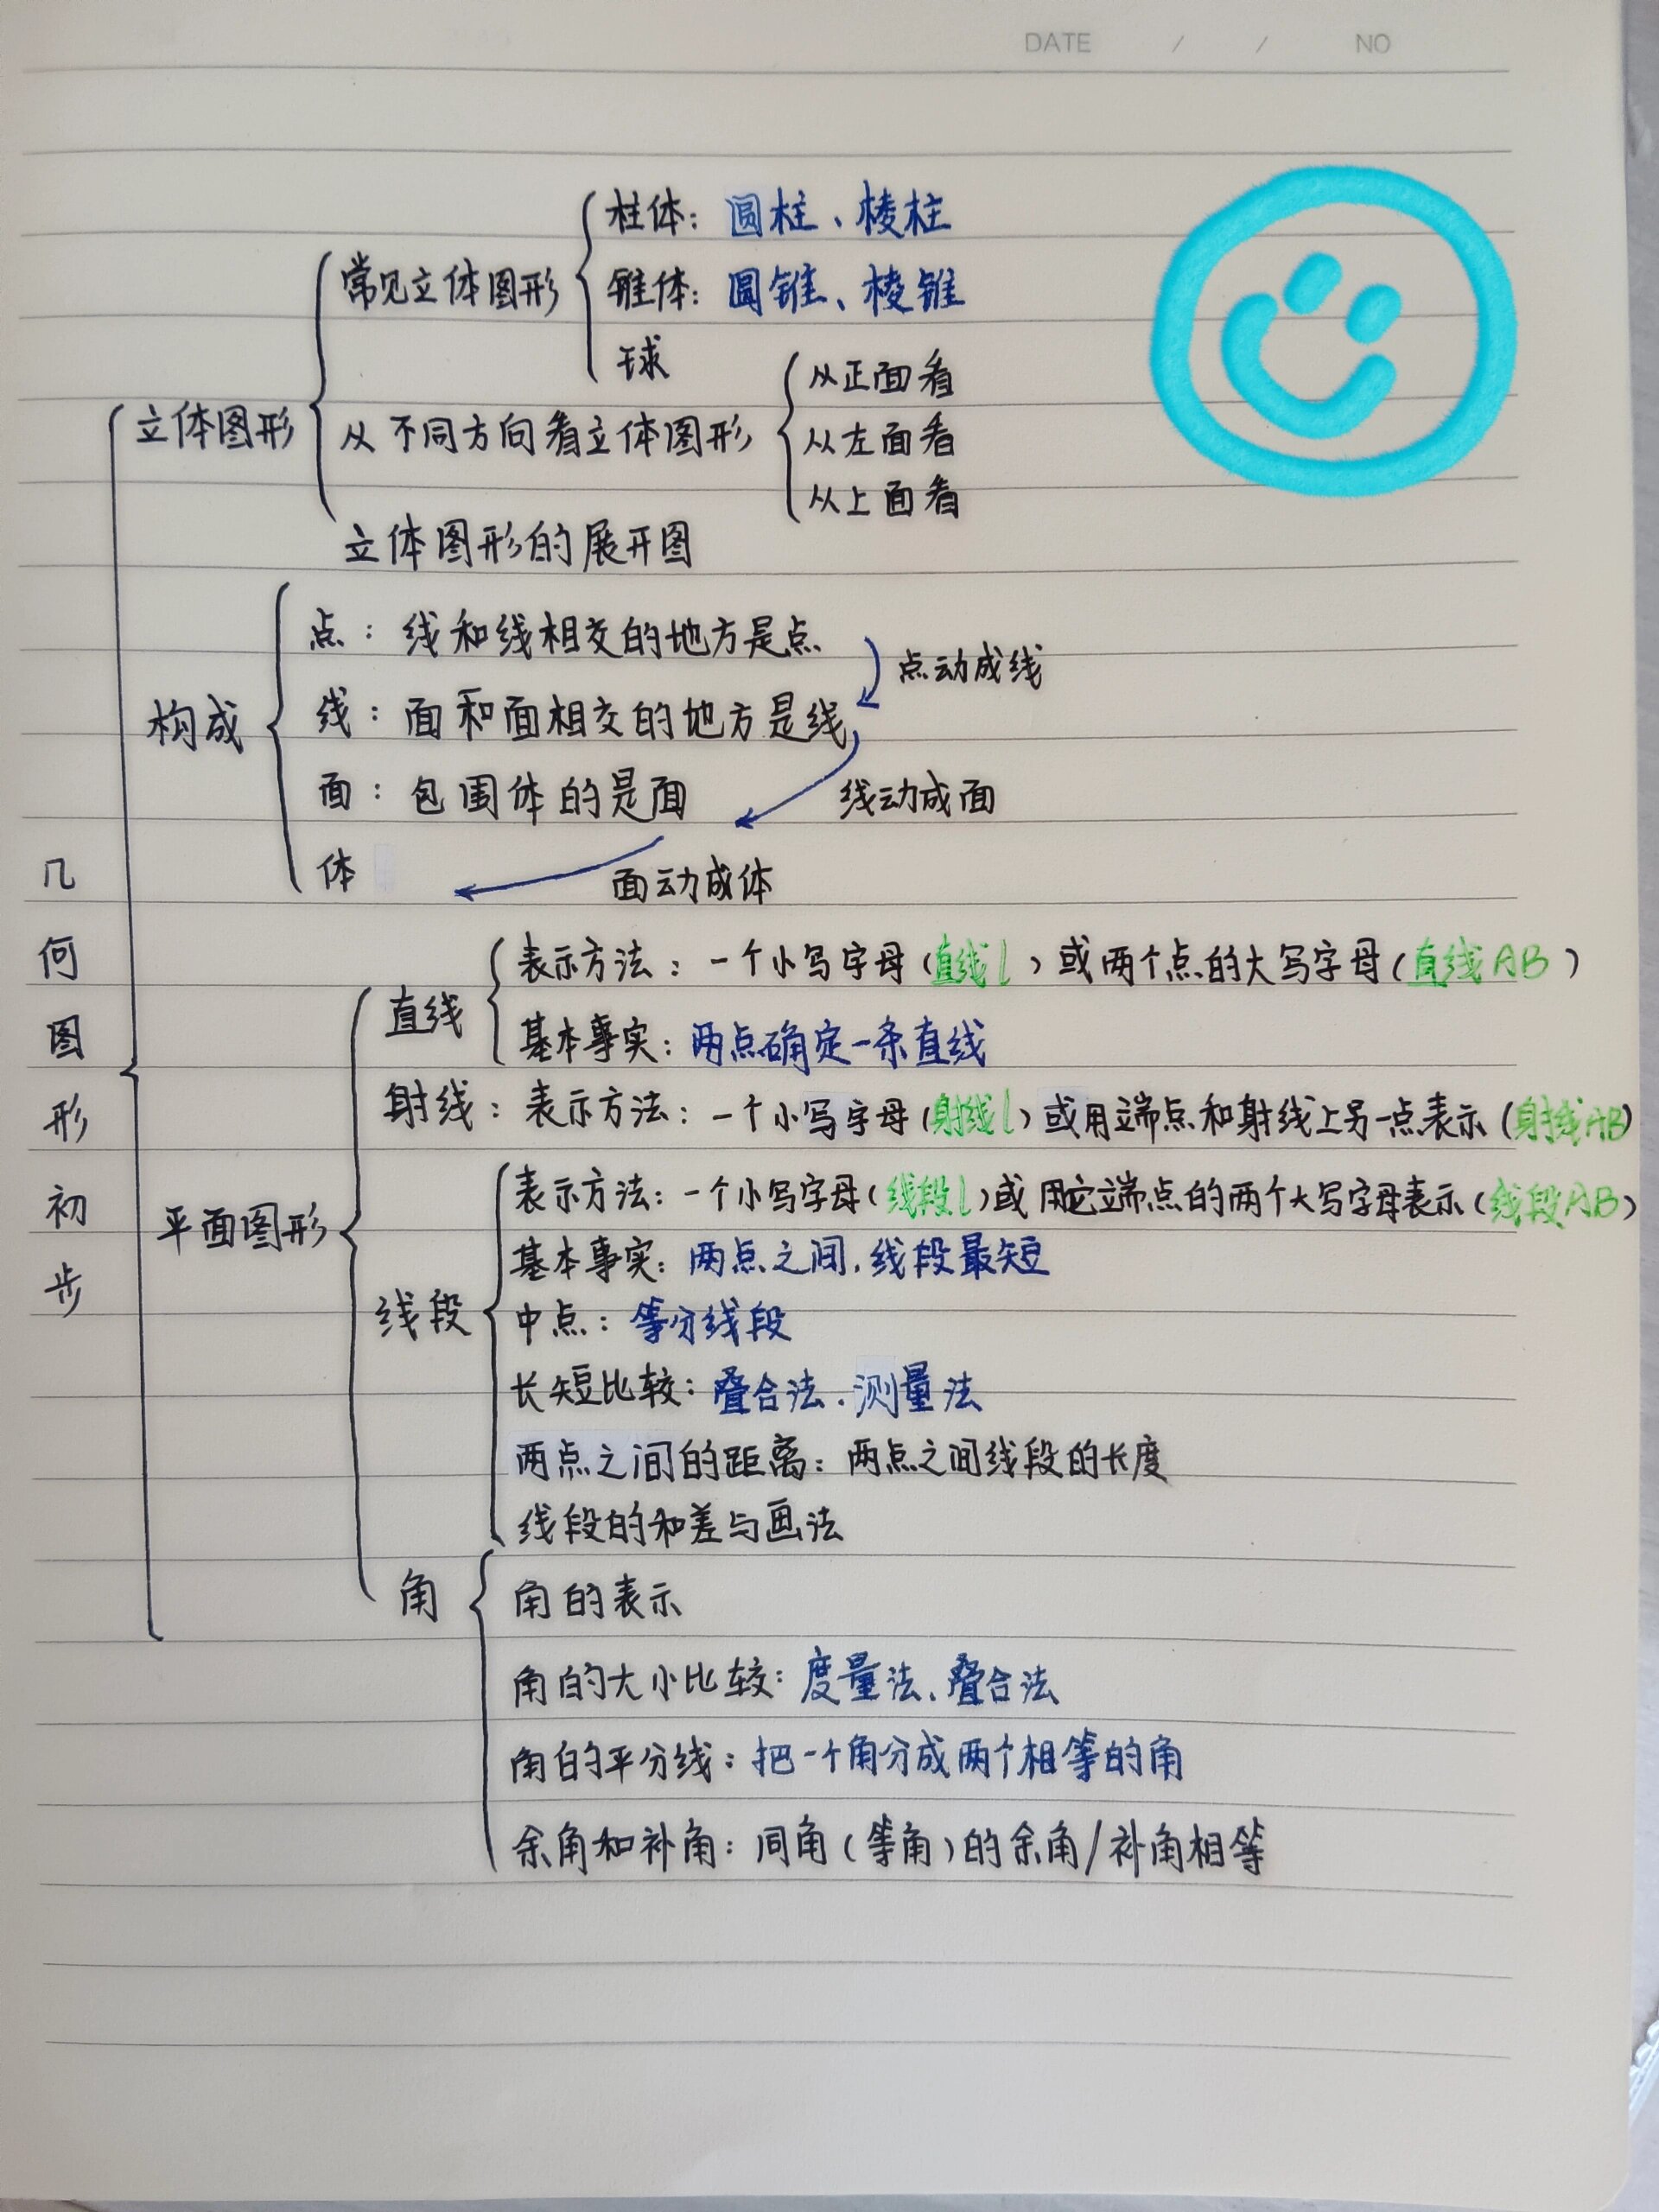 DATE / / NO
几何图形初步
立体图形
常见立体图形
柱体：圆柱、棱柱
锥体：圆锥、棱锥
球
从不同方向看立体图形
从正面看
从左面看
从上面看
立体图形的展开图
构成
点：线和线相交的地方是点
点动成线
线：面和面相交的地方是线
线动成面
面：包围体的是面
面动成体
体
平面图形
直线
表示方法：一个小写字母(直线l)或两个点的大写字母(直线AB)
基本事实：两点确定一条直线
射线：表示方法：一个小写字母(射线l)或用端点和射线上另一点表示(射线AB)
线段
表示方法：一个小写字母(线段l)或用它端点的两个大写字母表示(线段AB)
基本事实：两点之间,线段最短
中点：等分线段
长短比较：叠合法、测量法
两点之间的距离：两点之间线段的长度
线段的和差与画法
角
角的表示
角的大小比较：度量法、叠合法
角的平分线：把一个角分成两个相等的角
余角和补角：同角(等角)的余角/补角相等